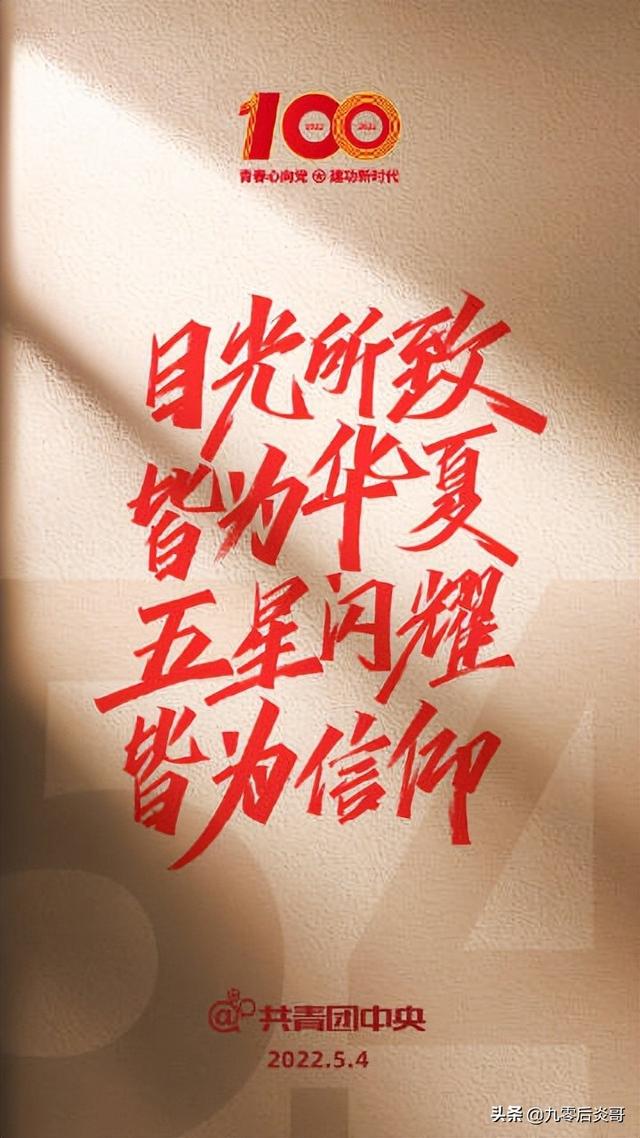 100
1922 2022
青春心向党 建功新时代
目光所致
皆为华夏
五星闪耀
皆为信仰
5.4
@共青团中央
2022.5.4
头条 @九零后炎哥